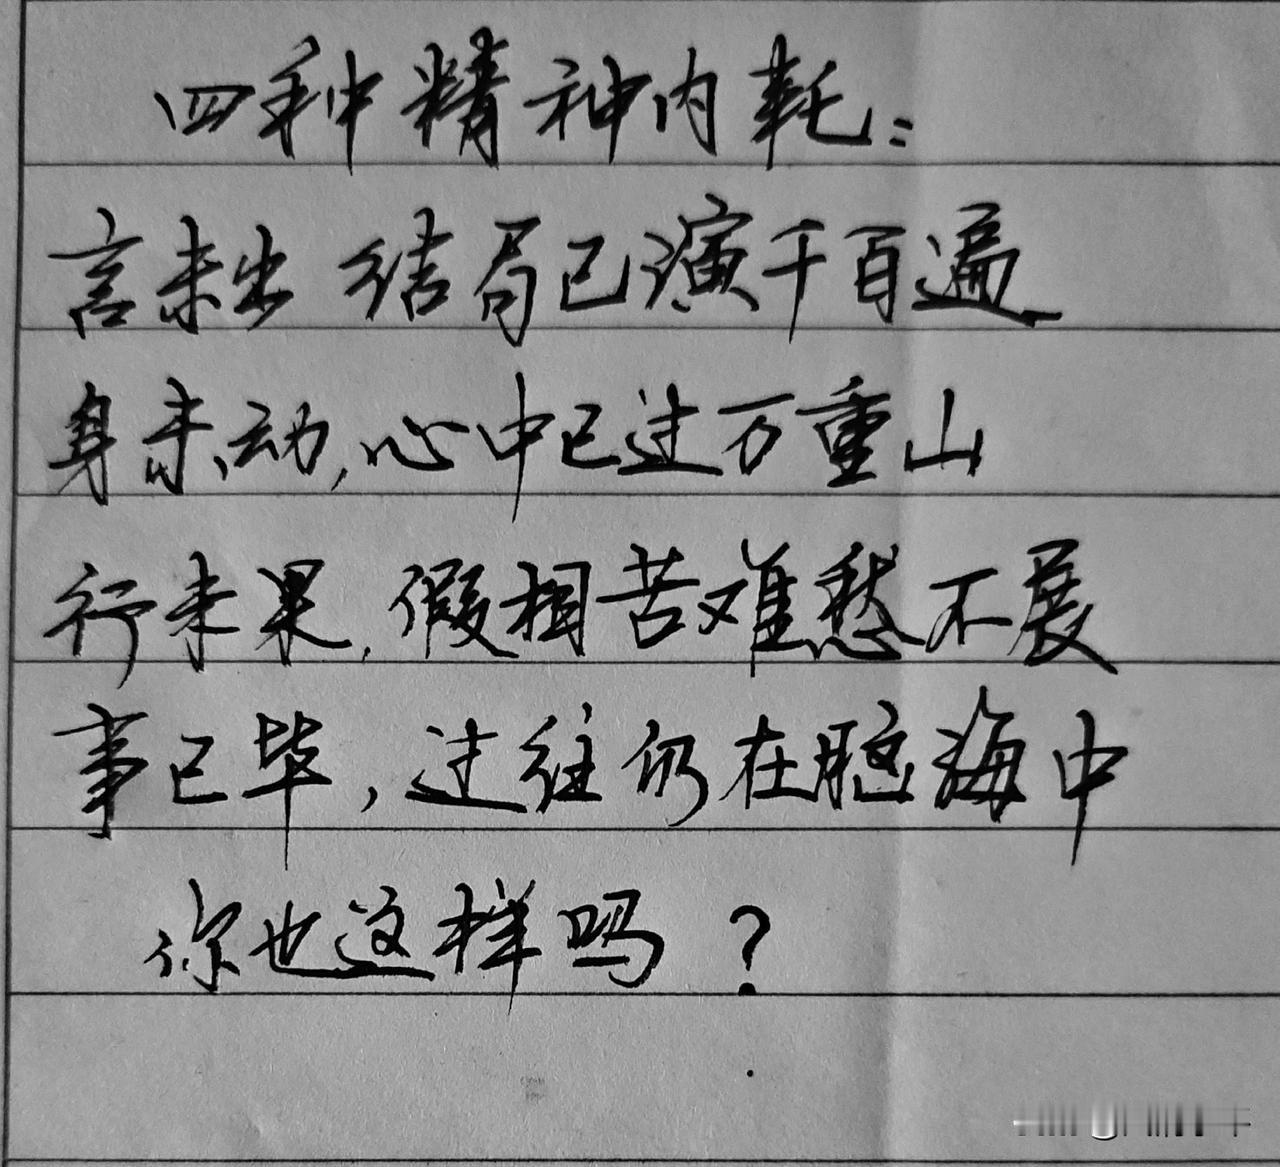 四种精神内耗：
言未出 结局已演千百遍
身未动，心中已过万重山
行未果，假相苦难愁不展
事已毕，过往仍在脑海中
你也这样吗？